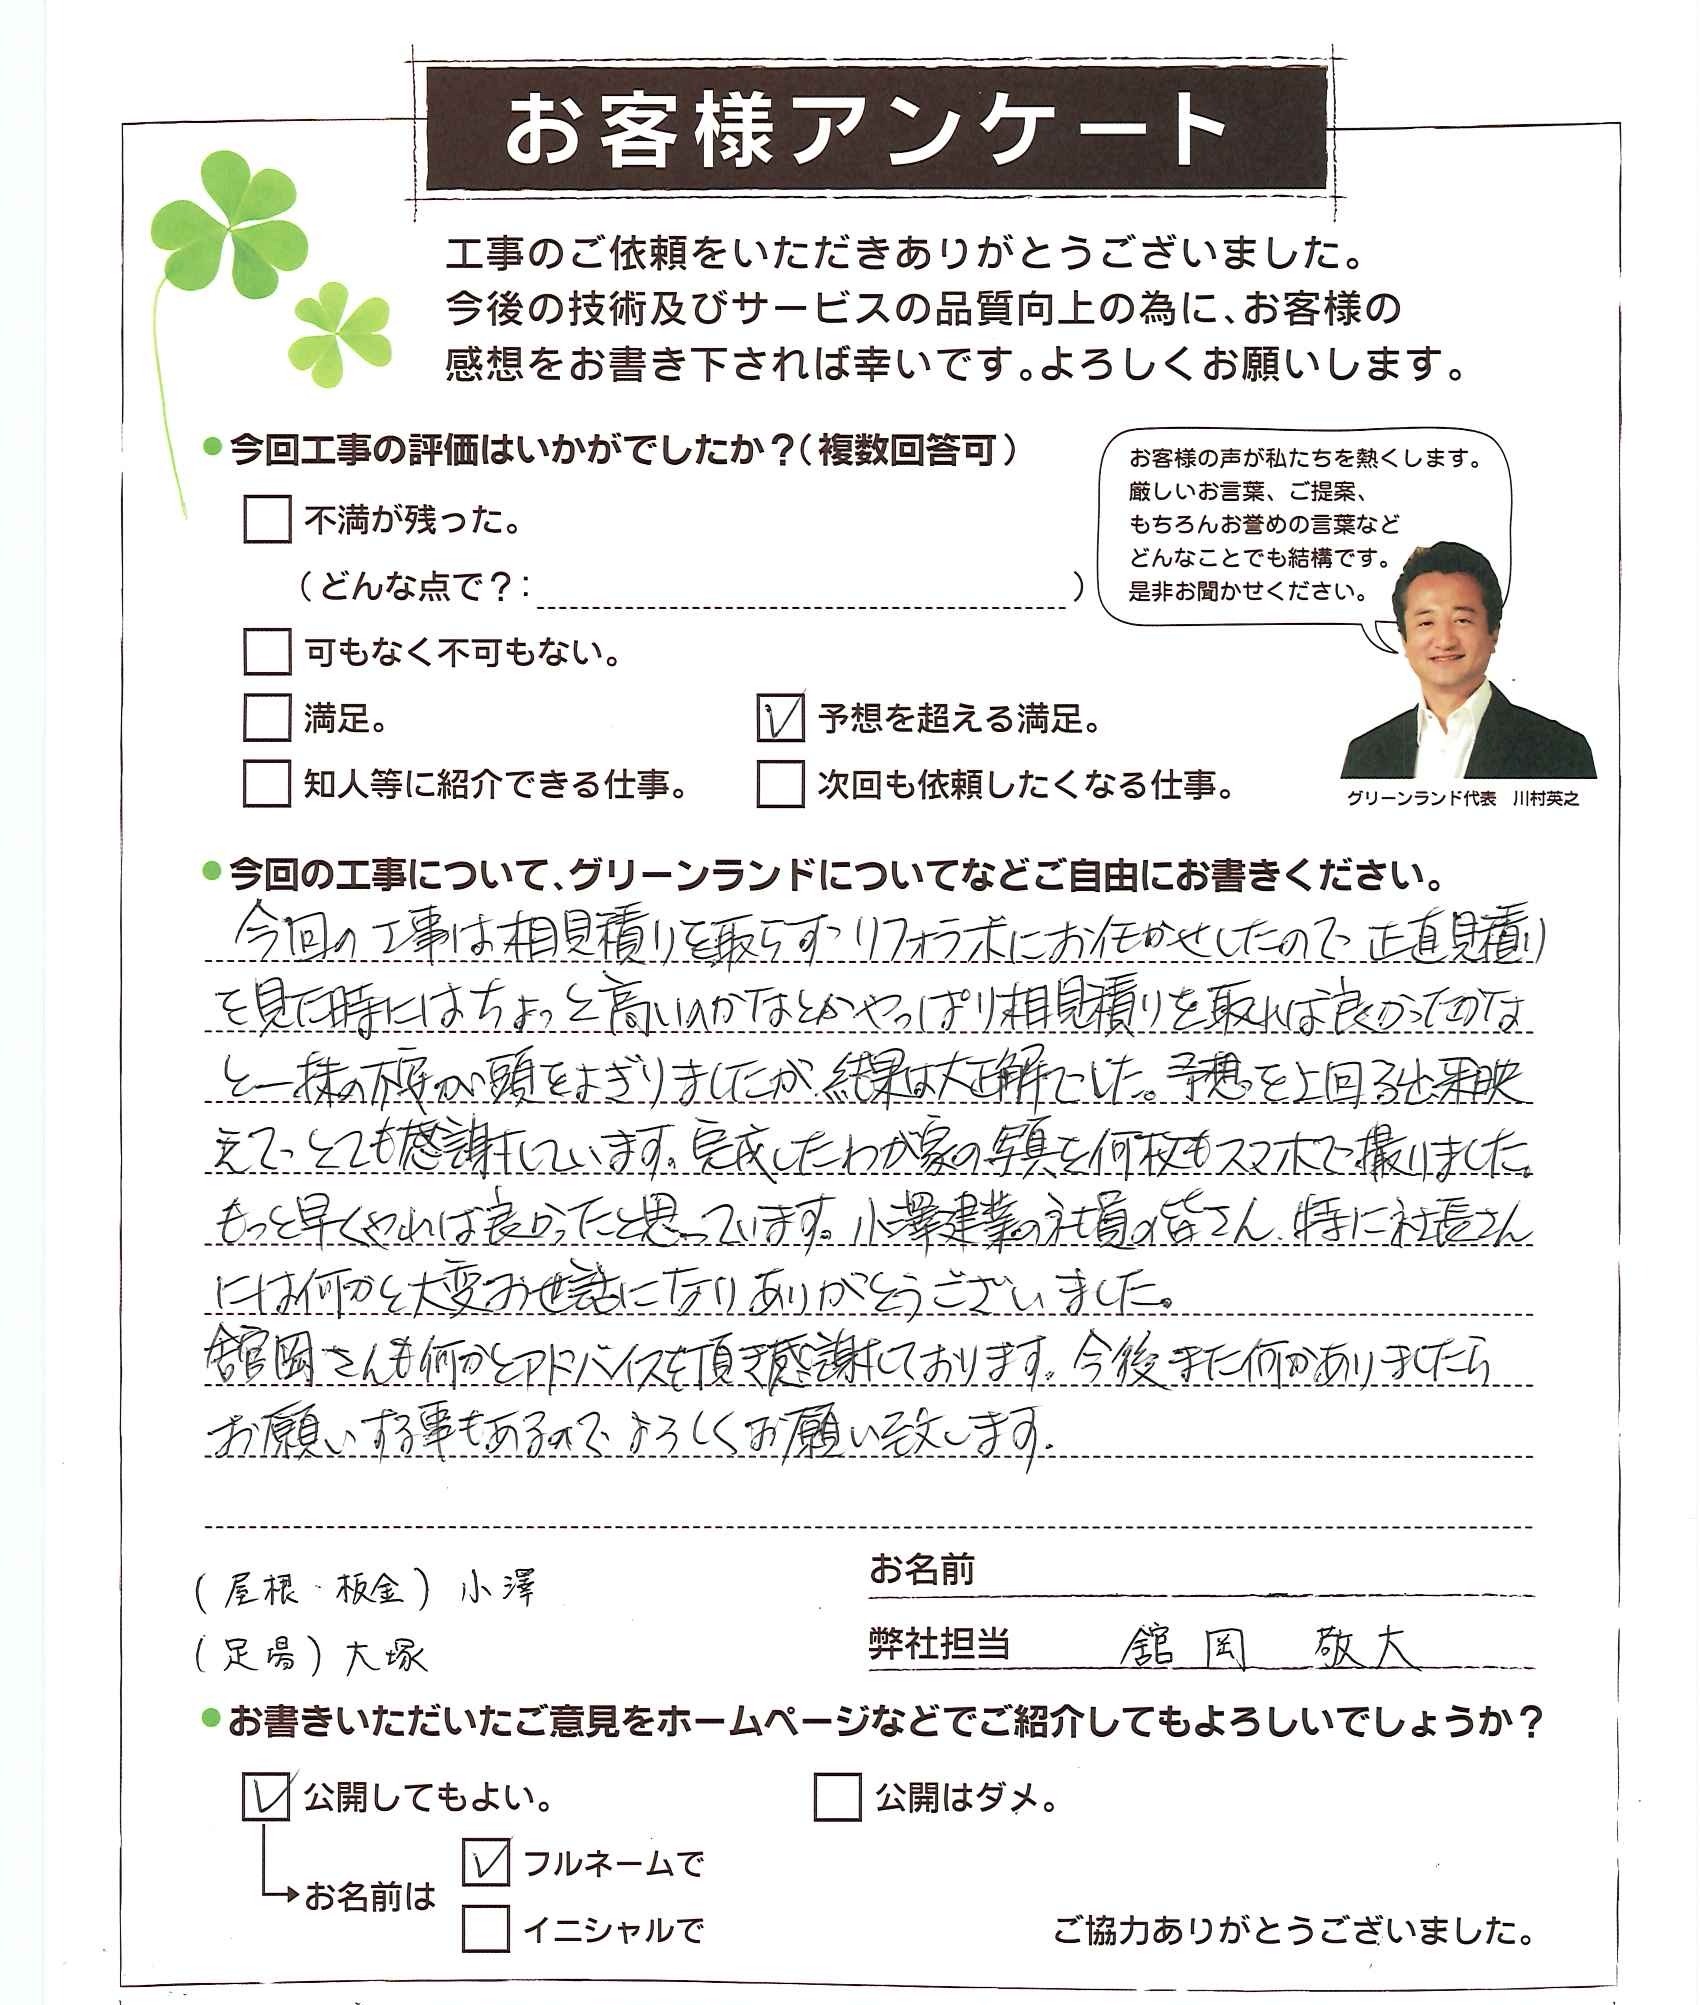 お客様アンケート
工事のご依頼をいただきありがとうございました。
今後の技術及びサービスの品質向上の為に、お客様の
感想をお書き下されば幸いです。よろしくお願いします。
●今回工事の評価はいかがでしたか？（複数回答可）
不満が残った。
（どんな点で？： ）
可もなく不可もない。
満足。
予想を超える満足。
知人等に紹介できる仕事。
次回も依頼したくなる仕事。
お客様の声が私たちを熱くします。
厳しいお言葉、ご提案、
もちろんお誉めの言葉など
どんなことでも結構です。
是非お聞かせください。
グリーンランド代表 川村英之
●今回の工事について、グリーンランドについてなどご自由にお書きください。
今回の工事は相見積りを取らずリフォラボにお任かせしたので正直見積り
を見た時にはちょっと高いのかなとかやっぱり相見積りを取れば良かったかな
と一抹の不安が頭をよぎりましたが、結果は大正解でした。予想を上回る出来映
えで、とても感謝しています。完成したわが家の写真を何枚もスマホで撮りました。
もっと早くやれば良かったと思っています。小澤建業の社員の皆さん、特に社長さん
には何かと大変お世話になりありがとうございました。
舘岡さんも何かとアドバイスを頂き感謝しております。今後また何かありましたら
お願いする事もあるのでよろしくお願い致します。
（屋根・板金）小澤
（足場）大塚
お名前
弊社担当 舘岡 敬大
●お書きいただいたご意見をホームページなどでご紹介してもよろしいでしょうか？
公開してもよい。
公開はダメ。
お名前は
フルネームで
イニシャルで
ご協力ありがとうございました。